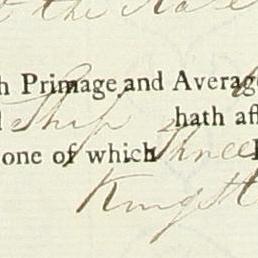 the
h Primage and Average
Ship hath aff
one of which three
Kingst